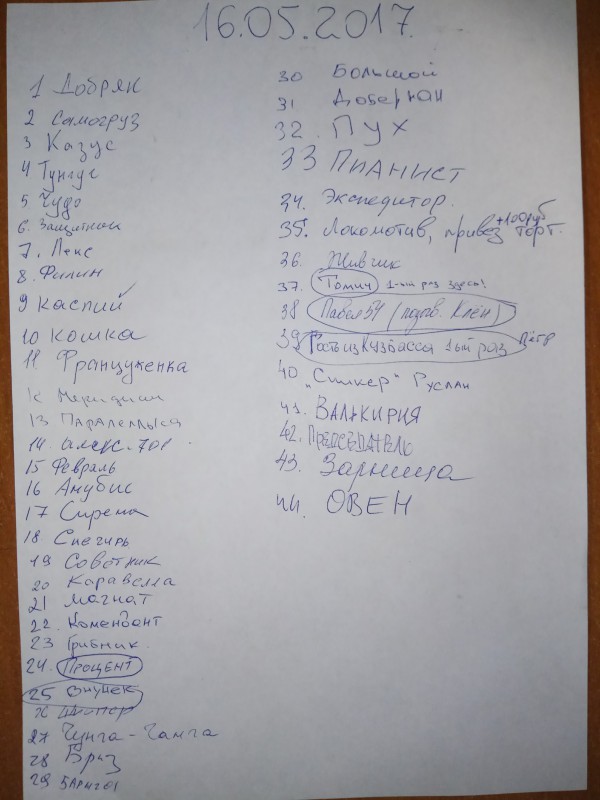 16.05.2017.
1 Добряк
2 Самогруз
3 Казус
4 Тунгус
5 Чудо
6.
7. Лекс
8. Филин
9 Каспий
10 Кошка
11 Француженка
12 Меридиан
13 Параллелька
14. Алекс. 701.
15 Февраль
16 Анубис
17 Сирена
18 Снегирь
19 Советник
20 Каравелла
21 Магнат
22. Комендант
23 Грибник.
24. Процент
25 Внучек
26
27 Чунга-Чанга
28 Бриз
29
30 Большой
31 Доберман
32. Пух
33 Пианист
34. Экспедитор.
35. Локомотив, привёз торт. +100руб
36. Живчик
37. Томич 1-ый раз здесь!
38 Павел 54 (подзв. Клён)
39 Гость из Кузбасса 1ый раз Пётр
40 „Сталкер" Руслан
41. Валькирия
42. Председатель
43. Зарница
44. Овен